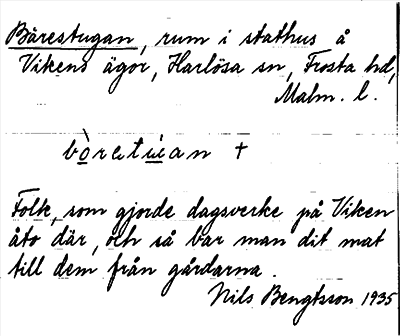 Bårestugan, rum i stathus å
Vikens ägor, Harlösa sn, Frosta hd,
Malm. l.
bòretúan +
Folk, som gjorde dagsverke på Viken
åto där, och så bar man dit mat
till dem från gårdarna.
Nils Bengtsson 1935